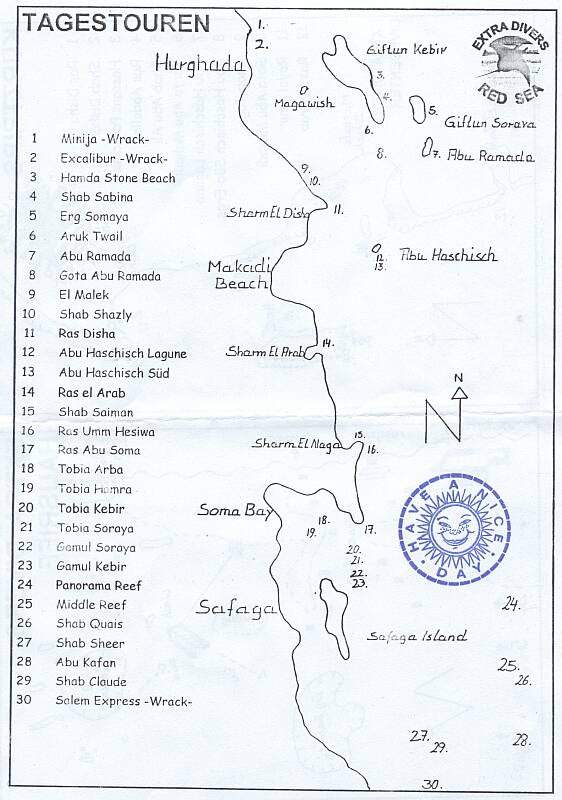 TAGESTOUREN
1 Minija -Wrack-
2 Excalibur -Wrack-
3 Hamda Stone Beach
4 Shab Sabina
5 Erg Somaya
6 Aruk Twail
7 Abu Ramada
8 Gota Abu Ramada
9 El Malek
10 Shab Shazly
11 Ras Disha
12 Abu Haschisch Lagune
13 Abu Haschisch Süd
14 Ras el Arab
15 Shab Saiman
16 Ras Umm Hesiwa
17 Ras Abu Soma
18 Tobia Arba
19 Tobia Hamra
20 Tobia Kebir
21 Tobia Soraya
22 Gamul Soraya
23 Gamul Kebir
24 Panorama Reef
25 Middle Reef
26 Shab Quais
27 Shab Sheer
28 Abu Kafan
29 Shab Claude
30 Salem Express -Wrack-
EXTRA DIVERS
RED SEA
1.
2.
Hurghada
Giftun Kebir
3.
4.
Magawish
5.
Giftun Soraya
6.
7. Abu Ramada
8.
9.
10.
Sharm El Disha
11.
Abu Haschisch
12.
13.
Makadi
Beach
14.
Sharm El Arab
N
15.
Sharm El Naga
16.
Soma Bay
17.
18.
19.
HAVE A NICE DAY
20.
21.
22.
23.
24.
Safaga
Safaga Island
25.
26.
27.
28.
29.
30.